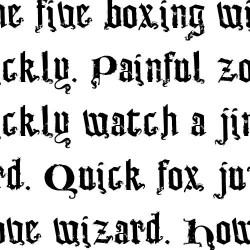 ne five boxing wi
ickly. Painful zo
ckly watch a jin
rd. Quick fox ju
ove wizard. How